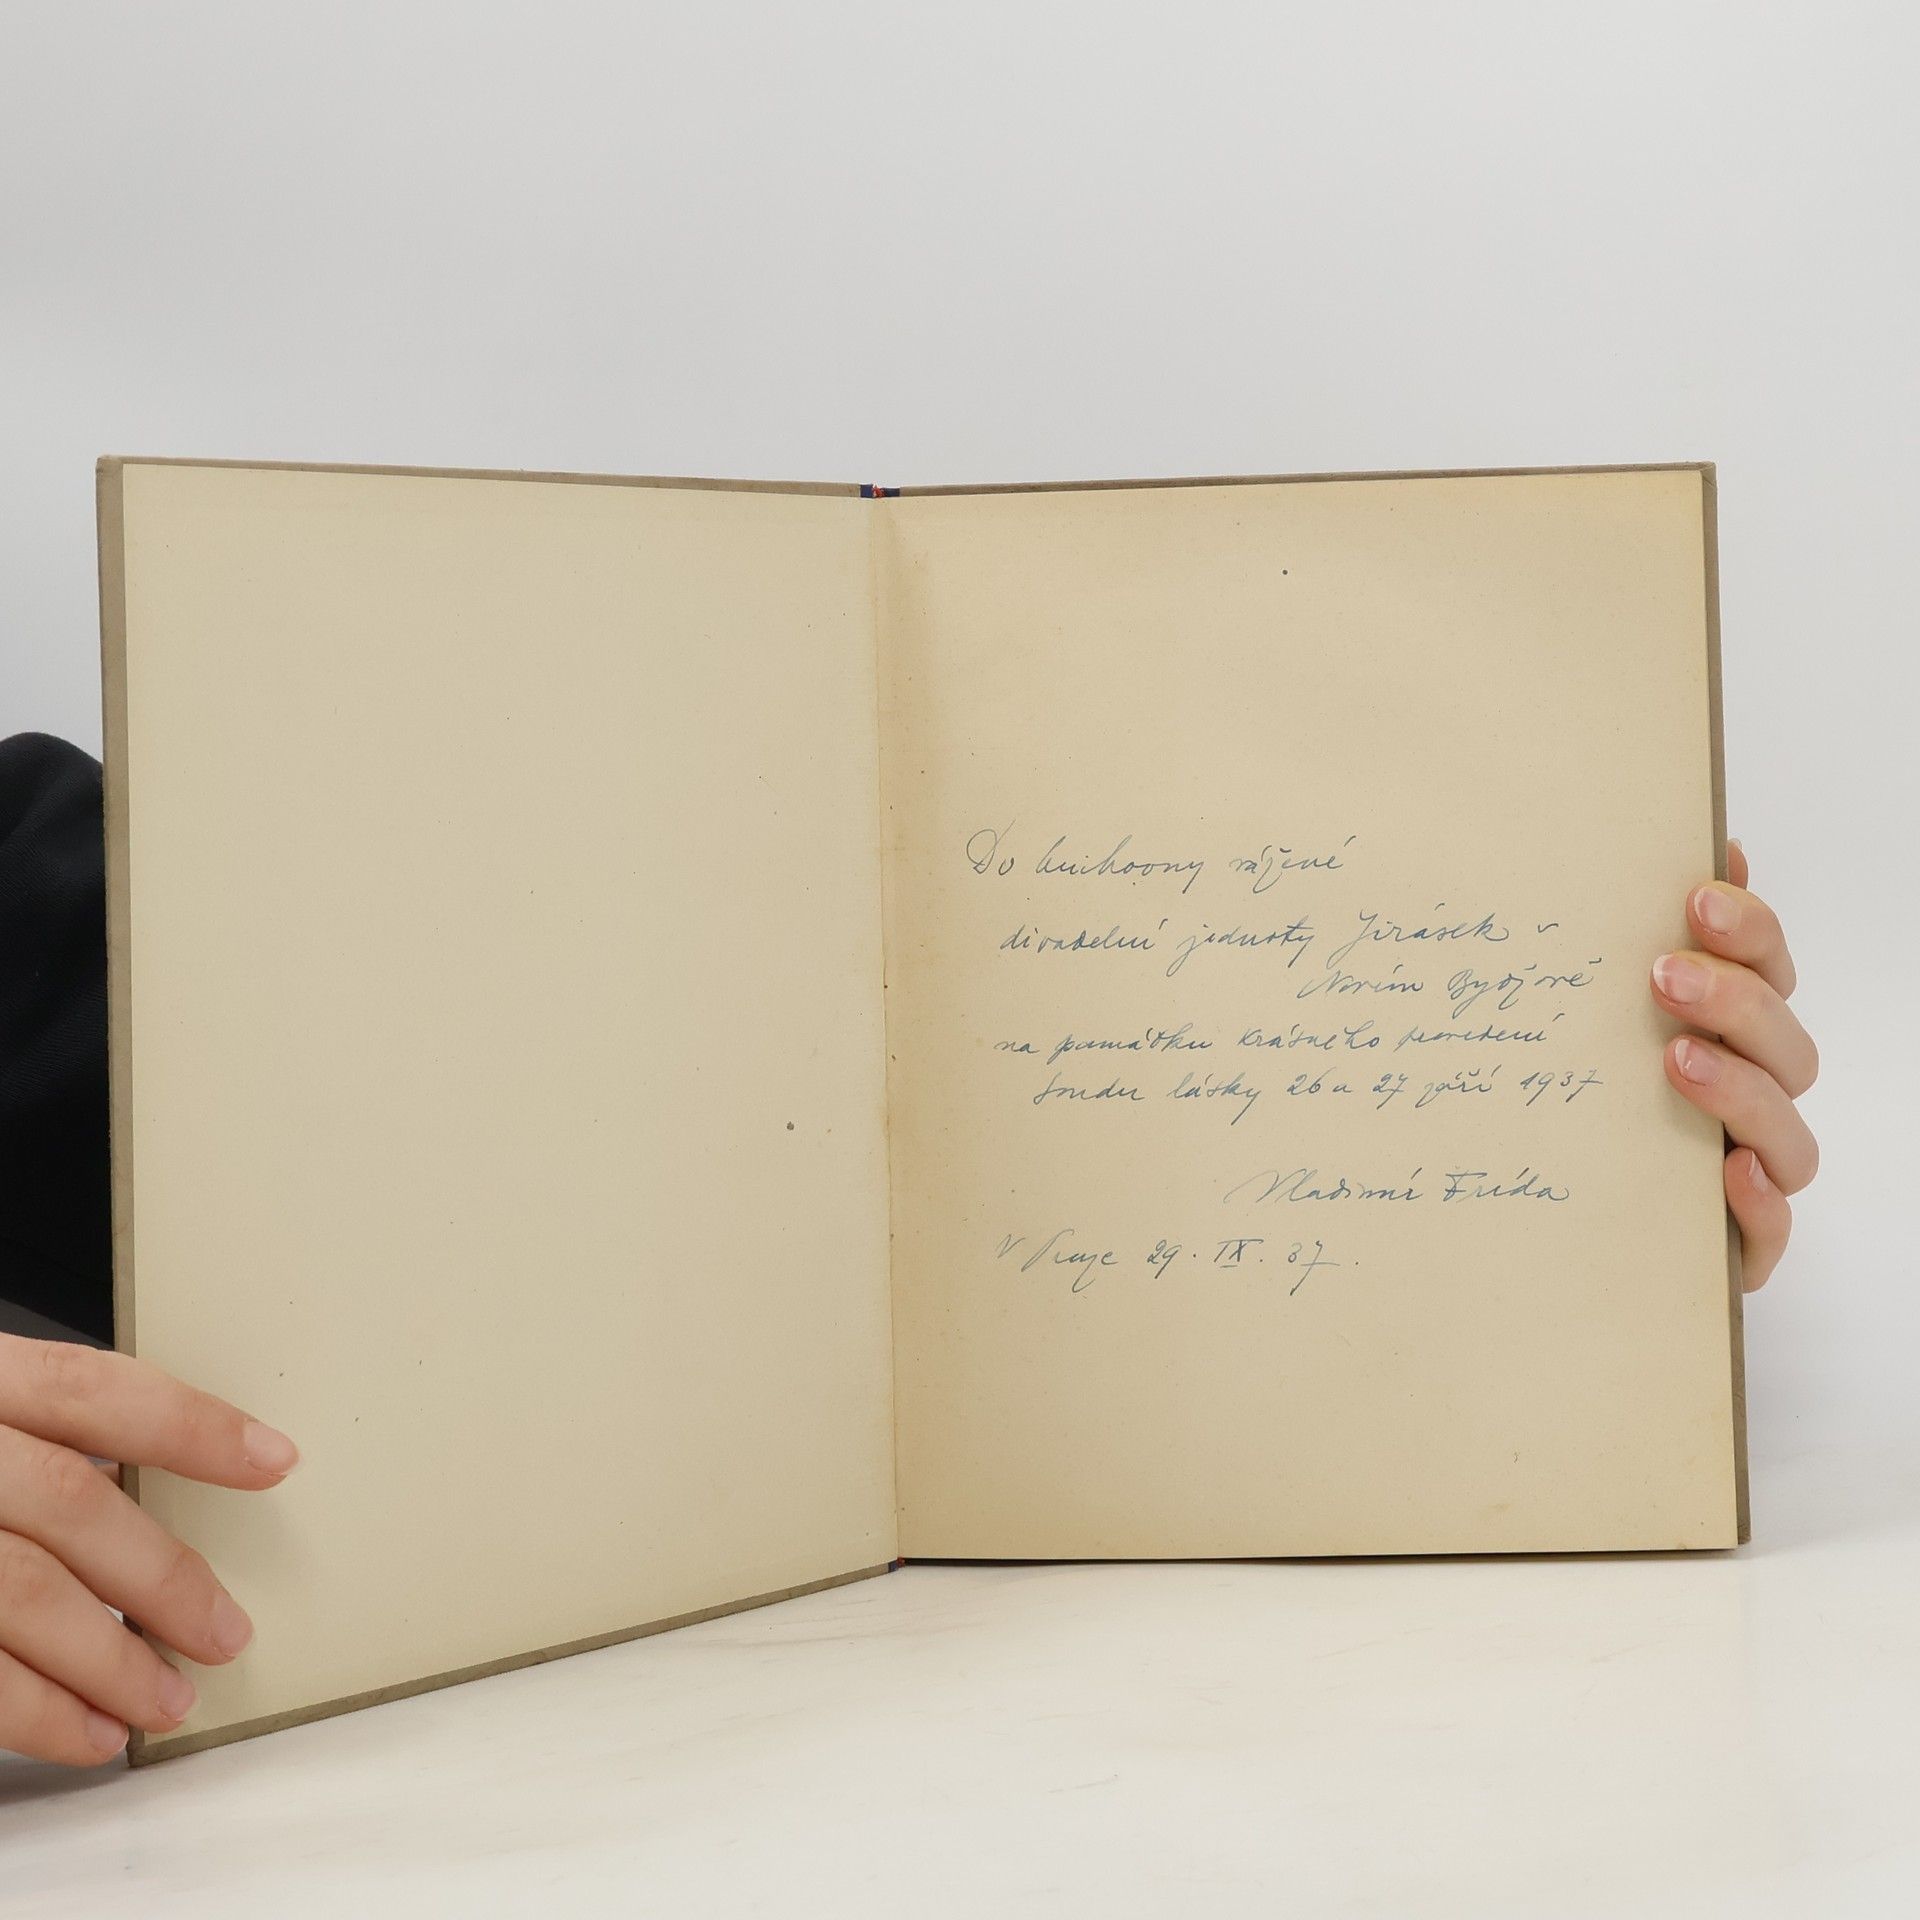 Do knihovny vážené
divadelní jednoty Jirásek v
Novém Bydžově
na památku krásného provedení
Soudu lásky 26 a 27 září 1937
Vladimír Frída
V Praze 29. IX. 37.